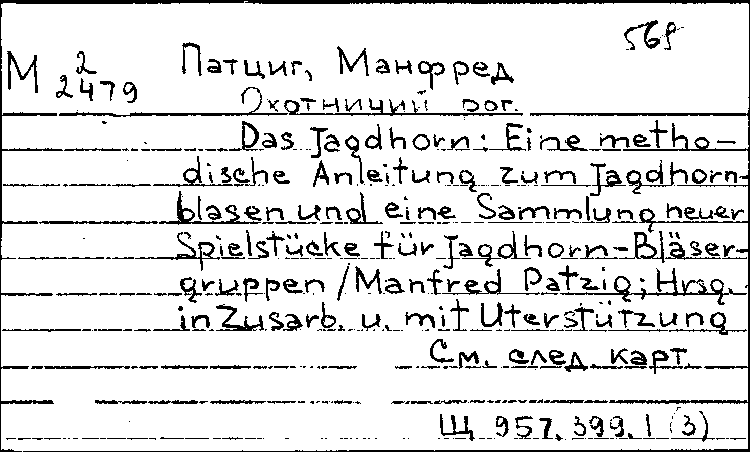 569
М 2
2479
Патциг, Манфред
Охотничий рог.
Das Jagdhorn: Eine metho-
dische Anleitung zum Jagdhorn-
blasen und eine Sammlung neuer
Spielstücke für Jagdhorn-Bläser-
gruppen / Manfred Patzig; Hrsg.
in Zusarb. u. mit Uterstützung
См. след. карт.
Щ 957.399.1 (3)